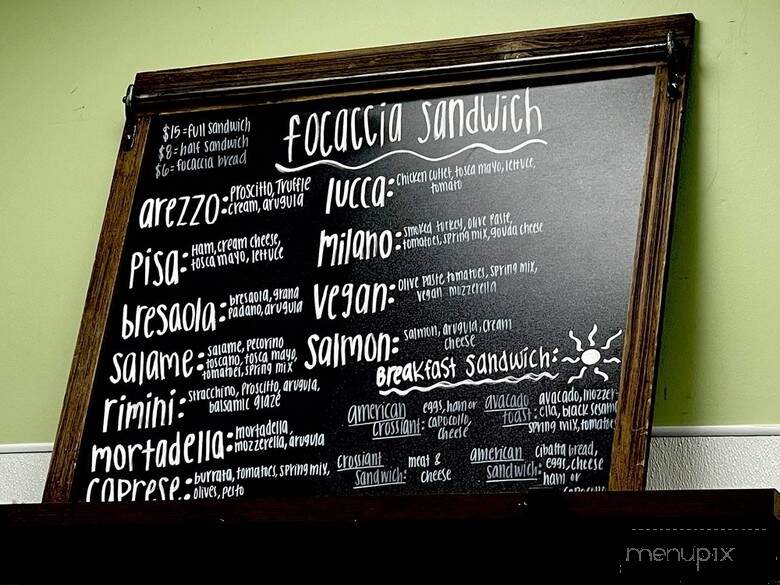 $15=full sandwich
$8=half sandwich
$6=focaccia bread
focaccia sandwich
arezzo: Proscitto, Truffle
cream, arugula
Pisa: Ham, cream cheese,
tosca mayo, lettuce
bresaola: bresaola, grana
padano, arugula
salame: salame, pecorino
toscano, tosca mayo,
tomatoes, spring mix
rimini: stracchino, Proscitto, arugula,
balsamic glaze
mortadella: mortadella,
mozzerella, arugula
caprese: burrata, tomatoes, spring mix,
olives, pesto
lucca: Chicken cutlet, tosca mayo, lettuce,
tomato
milano: smoked turkey, olive paste,
tomatoes, spring mix, gouda cheese
vegan: olive paste tomatoes, spring mix,
vegan mozzerella
salmon: salmon, arugula, cream
cheese
Breakfast Sandwich:
american eggs, ham or
crossiant: capocollo,
cheese
avacado avacado, mozzer-
toast: ella, black sesame
spring mix, tomatoes
crossiant meat &
sandwich: cheese
american cibatta bread,
sandwich: eggs, cheese
ham or
capocollo
menupix